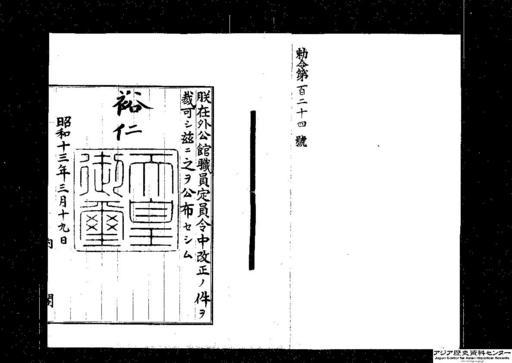 勅令第百二十四號
朕在外公館職員定員令中改正ノ件ヲ
裁可シ茲ニ之ヲ公布セシム
裕仁
天皇御璽
昭和十三年三月十九日
内閣
アジア歴史資料センター
Japan Center for Asian Historical Records